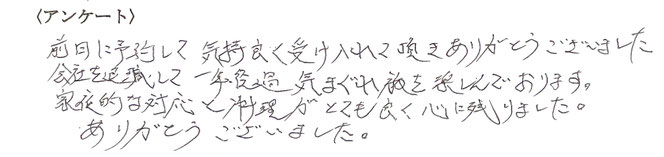 〈アンケート〉
前日に予約して 気持良く受け入れて頂きありがとうございました
会社を退職して 一年経過 気まぐれ旅を楽しんでおります。
家庭的な対応と料理がとても良く心に残りました。
ありがとうございました。